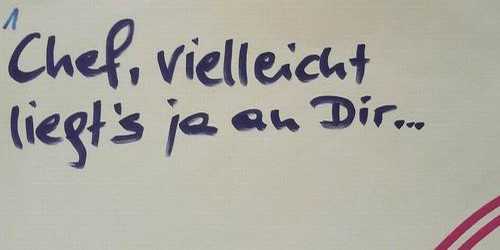 1
Chef, vielleicht
liegt's ja an Dir...